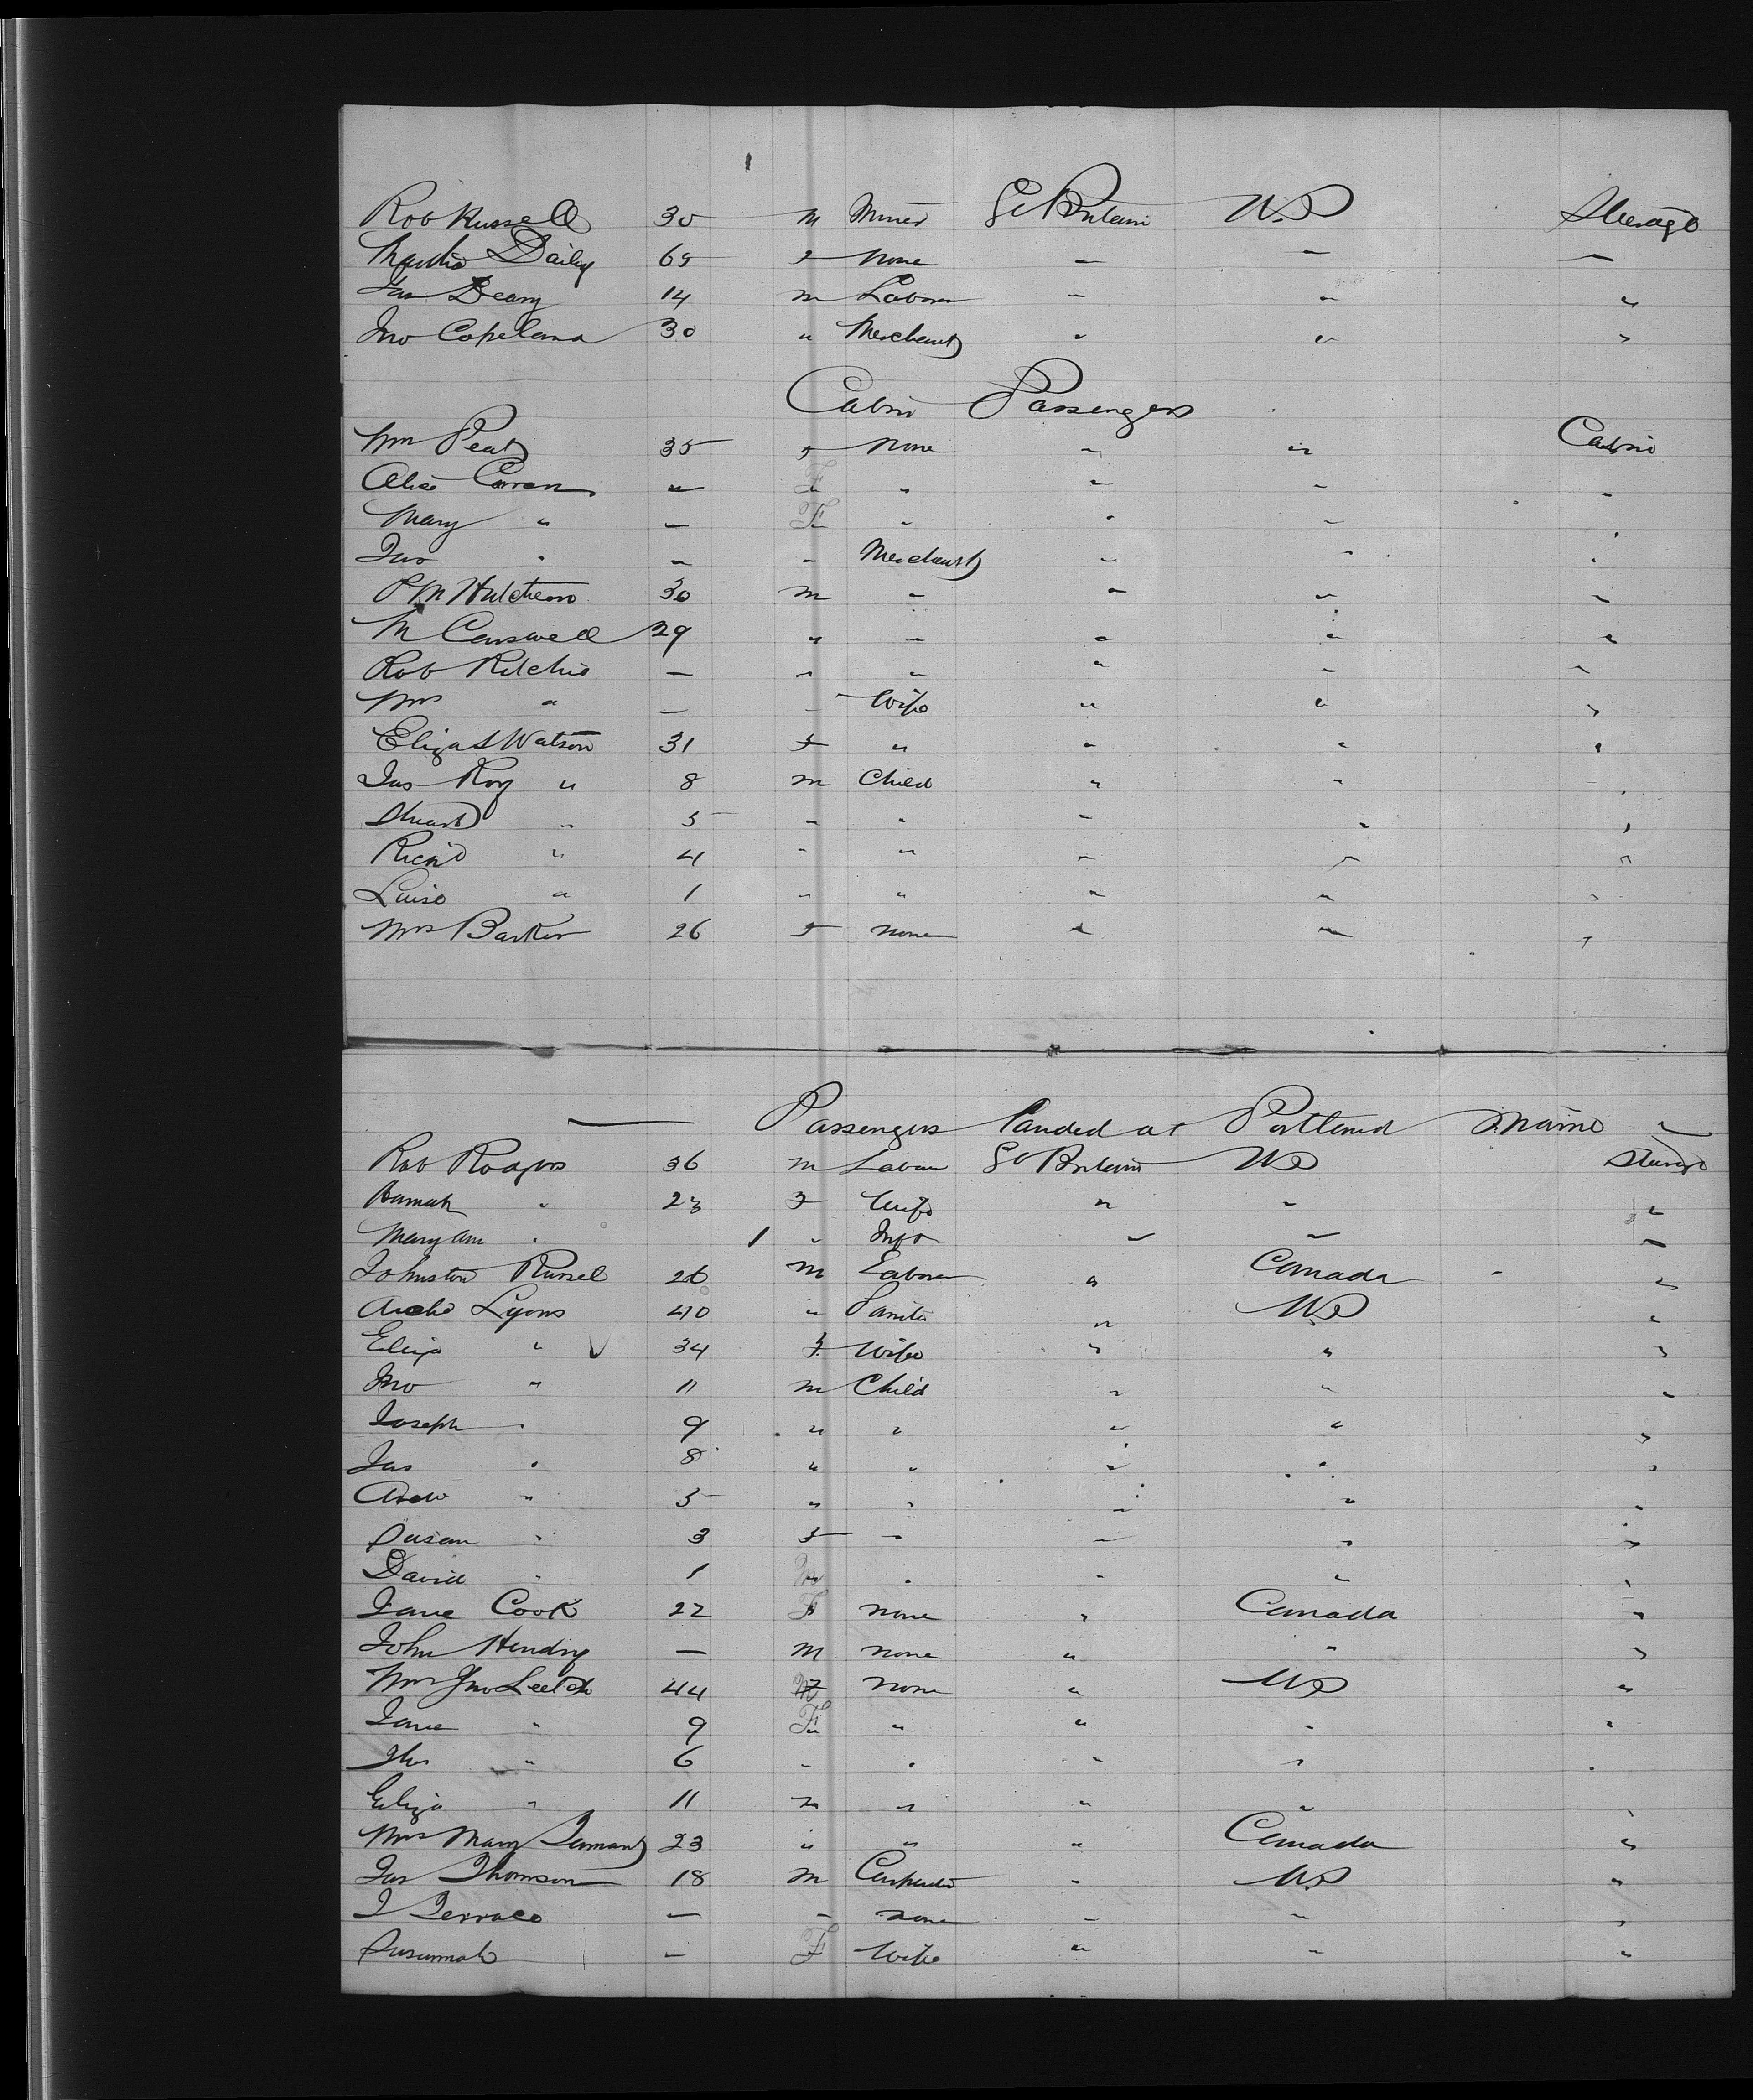 Rob Russell 30 M Miner Gt Britain U.S Steerage
Martha Daily 65 F None — — —
Jas Deary 14 m Labor — " "
Jno Copeland 30 " Merchant " " "
Cabin Passengers
Wm Peat 35 F None " " Cabin
Alice Curran " F " " " "
Mary " — F " " " "
Jas " " " Merchant " " "
P M Hutcheson 30 m " " " "
M Carswell 29 " " " " "
Rob Ritchie — " " " " "
Mrs " — — Wife " " "
Eliza S Watson 31 F " " " "
Jas Roy " 8 m Child " " "
Stuart " 5 " " " " "
Rich'd " 4 " " " " "
Luise " 1 " " " " "
Mrs Barker 26 F none " " "
— Passengers landed at Portland Maine
Rob Rodgers 36 m Labor Gt Britain US Steerage
Hannah " 23 F Wife " " "
Mary Ann " 1 " Inft " " "
Johnston Russel 26 m Labor " Canada "
Archd Lyons 40 " " US "
Eliza " 34 F Wife " " "
Jno " 11 m Child " " "
Joseph " 9 " " " " "
Jas " 8 " " " " "
Andw " 5 " " " " "
Susan " 3 F " " " "
David " 1 M " " " "
Jane Cook 22 F none " Canada "
John Hendry — M none " " "
Mrs Jno Leetch 44 none " US "
Jane " 9 F " " " "
Thos " 6 " " " " "
Eliza " 11 " " " "
Mrs Mary 23 " " " Canada "
Jas Thomson 18 m Carpenter " US "
J Terrace — " none " " "
Susannah — F Wife " " "